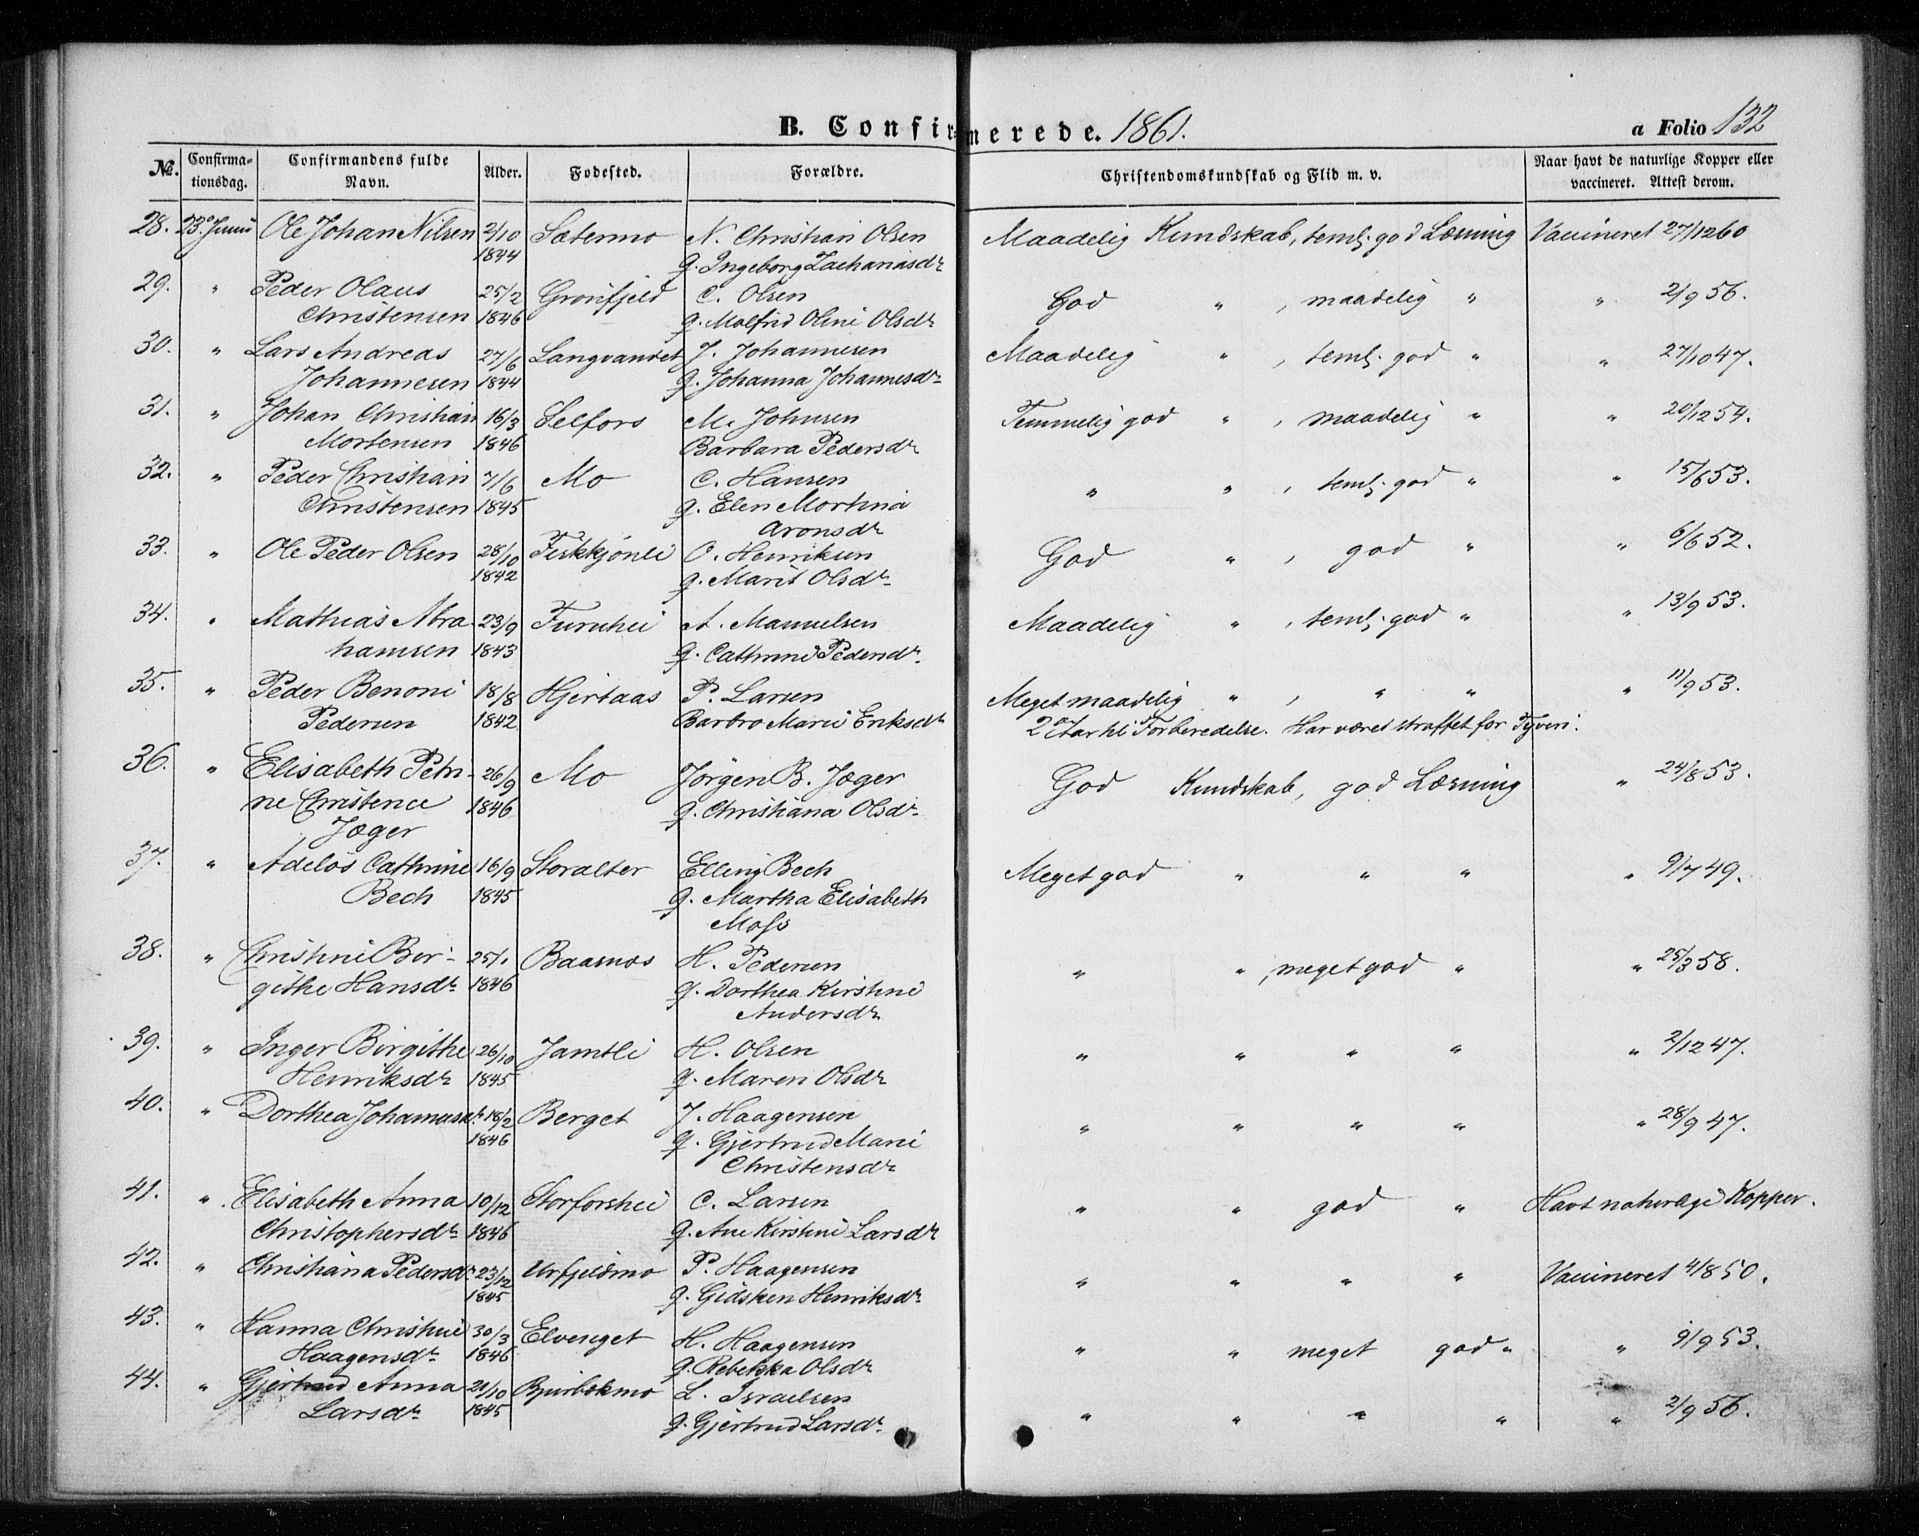 B. Confirmerede. 1861.
a Folio 132
No. Confirmationsdag. Confirmandens fulde Navn. Alder. Fødested. Forældre. Christendomskundskab og Flid m. v. Naar havt de naturlige Kopper eller vaccineret. Attest derom.
28. 23. Junii Ole Johan Nilsen 2/10 Sætermo N. Christian Olsen Maadelig Kundskab, teml. god Læsning Vaccineret 27/12 60
1844 q. Ingeborg Zachariasdr
29. " Peder Olaus 25/2 Grønfjeld C. Olsen God " , maadelig " " 2/9 56.
Christensen 1846 q. Malfrid Oline Olsdr
30. " Lars Andreas 27/6 Langvandet J. Johannesen Maadelig " , teml. god " " 27/10 47.
Johannesen 1844 q. Johanna Johannesdr
31. " Johan Christian 16/3 Selfors M. Johnsen Temmelig god " , maadelig " " 20/12 54.
Mortensen 1846 Barbara Pedersdr
32. " Peder Christian 7/6 Mo C. Hansen " " , teml. god " " 15/6 53.
Christensen 1845 q. Elen Martina
Aronsdr
33. " Ole Peder Olsen 28/10 Fiskkjønli O. Henriksen God " , god " " 6/6 52.
1842 q. Marit Olsdr
34. " Mathias Abra- 23/9 Furuhei A. Manuelsen Maadelig " , teml. god " " 13/9 53.
hamsen 1843 q. Cathrine Pedersdr.
35. " Peder Benoni 18/8 Hjertaas P. Larsen Meget maadelig " , " " " 11/9 53.
Pedersen 1842 Barbro Marie Eriksdr 2 Aar til Forberedelse. Har været straffet for Tyveri.
36. " Elisabeth Petri- 26/9 Mo Jörgen B. Jæger God Kundskab, god Læsning " 24/8 53.
ne Christence 1846 q. Christiana Olsdr
Jæger
37. " Adelös Cathrine 16/9 Storalter Elling Bech Meget god " " " " 9/7 49.
Bech 1845 q. Martha Elisabeth
Moss
38. " Christine Ber- 25/1 Baasmos H. Pedersen " " , meget god " " 25/3 58.
githe Hansdr 1846 q. Dorthea Kirstine
Andersdr
39. " Inger Birgithe 26/10 Jamtli H. Olsen " " " " " 2/12 47.
Henriksdr 1845 q. Maren Olsdr
40. " Dorthea Johannesdr 18/2 Berget J. Haagensen " " " " " 28/9 47.
1846 q. Gjertrud Marie
Christensdr
41. " Elisabeth Anna 10/12 Storforshei C. Larsen " " god " Havt naturlige Kopper.
Christophersdr 1846 q. Ane Kirstine Larsdr
42. " Christiana Pedersdr 23/12 Urfjeldmo P. Haagensen " " " " Vaccineret 4/8 50.
1845 q. Gidsken Henriksdr
43. " Hanna Christine 30/3 Elvenget H. Haagensen " " meget god " " 9/9 53.
Haagensdr 1846 q. Rebekka Olsdr
44. " Gjertrud Anna 21/10 Bjurbekmo L. Israelsen " " " " " 2/9 56.
Larsdr 1845 q. Gjertrud Larsdr